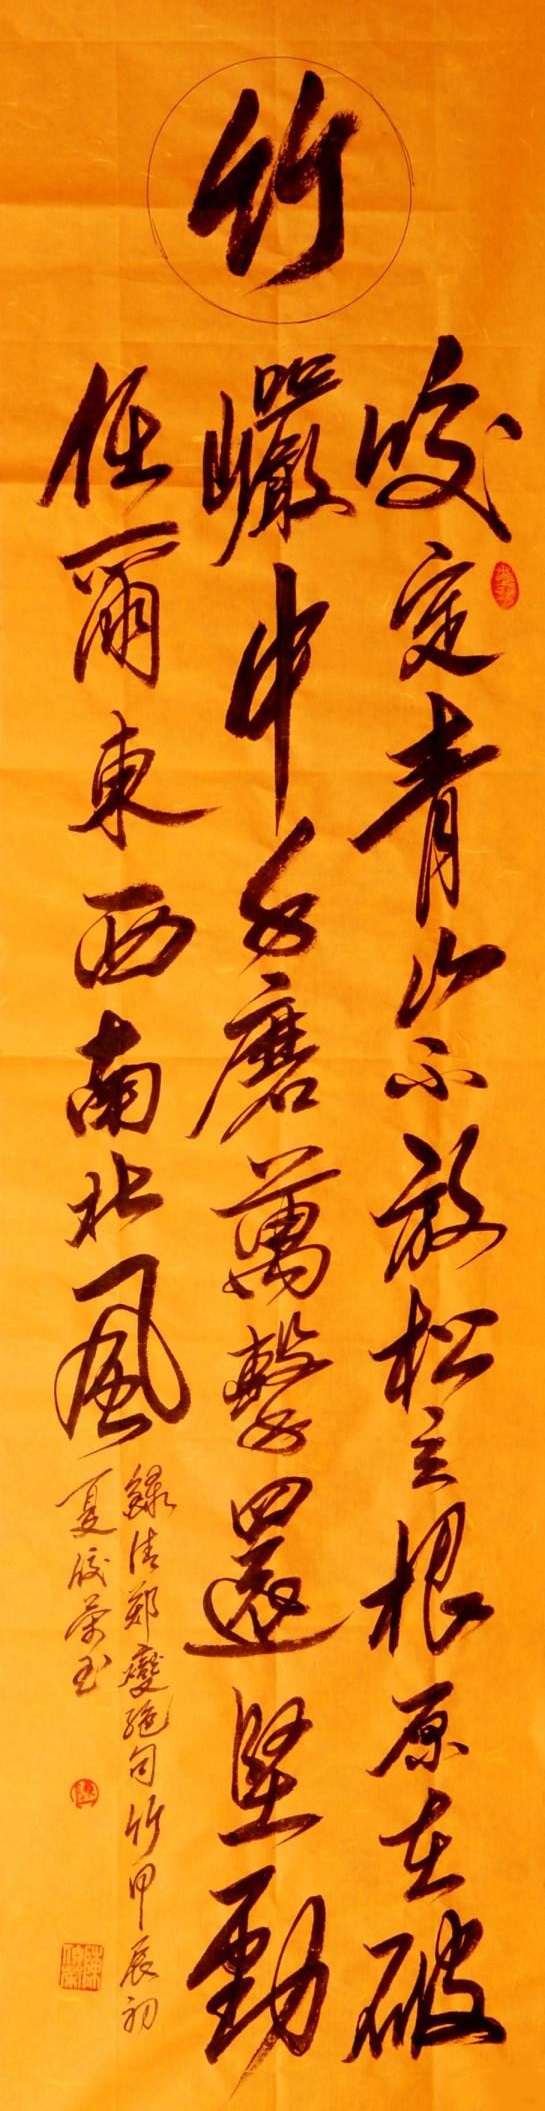 竹
咬定青山不放松立根原在破
巖中千磨萬擊還堅勁
任爾東西南北風
錄清鄭燮絕句竹甲辰初
夏